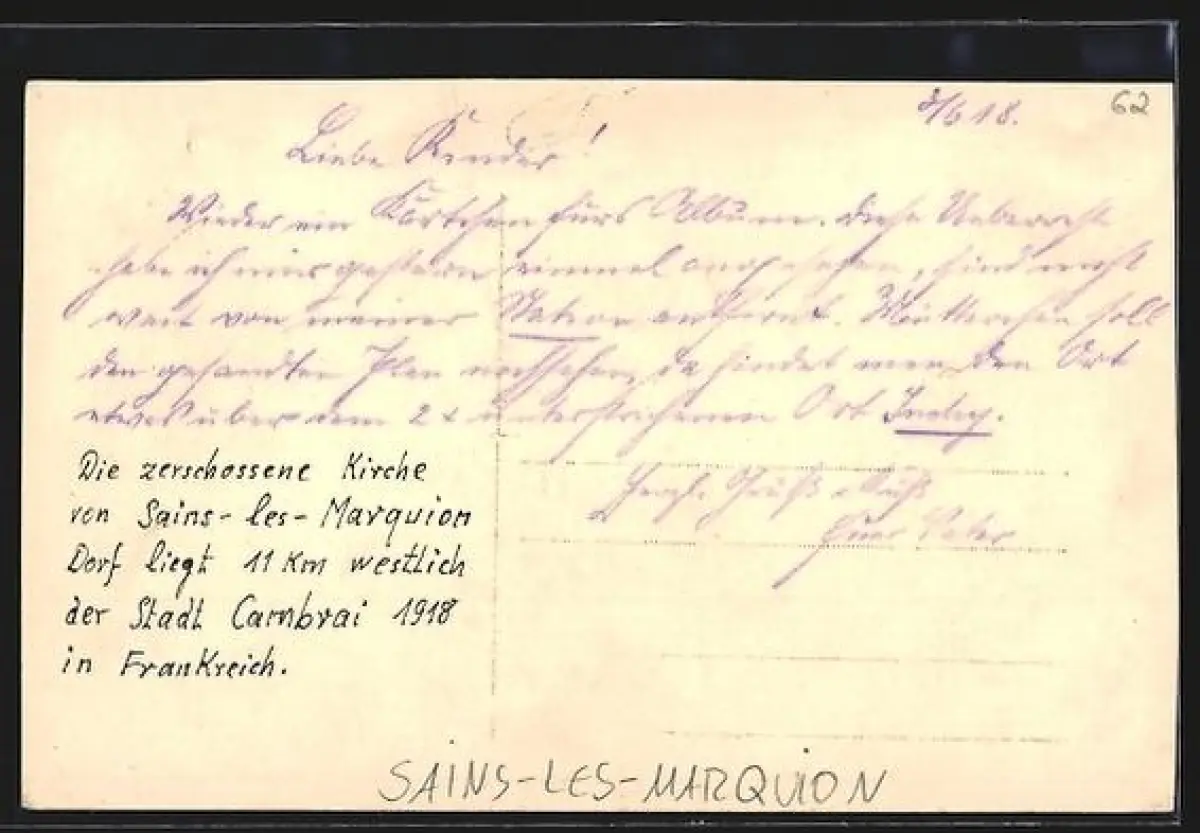 3/6 18.
62
Liebe Kinder!
Wieder ein Kärtchen fürs Album. Diese Ueberreste
habe ich mir gestern einmal angesehen, sind nicht
weit von meiner Station entfernt. Mütterchen soll
den gesandten Plan nachsehen, da findet man den Ort
etwas über dem 2 x unterstrichenen Ort Inchy.
Herzl. Gruß u Kuß
Euer Vater
Die zerschossene Kirche
von Sains-les-Marquion
Dorf liegt 11 Km westlich
der Stadt Cambrai 1918
in Frankreich.
SAINS-LES-MARQUION